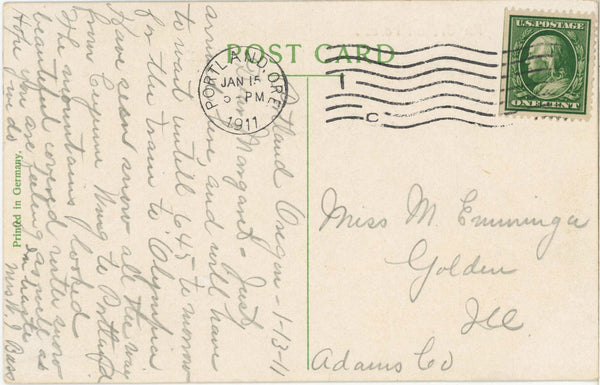 POST CARD
PORTLAND, OREG.
JAN 15
5 - PM
1911
U.S. POSTAGE
ONE CENT
Portland Oregon - 1-13-11
Dear Margaret - Just
arrived here, and will have
to wait untill 6:45 to morrow
for the train to Olympia
Have seen snow all the way
from to Portland
The mountains looked
beautiful covered with snow
Hope you are feeling as well as
we do In haste
Mrs W J Bass
Printed in Germany.
Miss M. Emminga
Golden
Ill
Adams Co